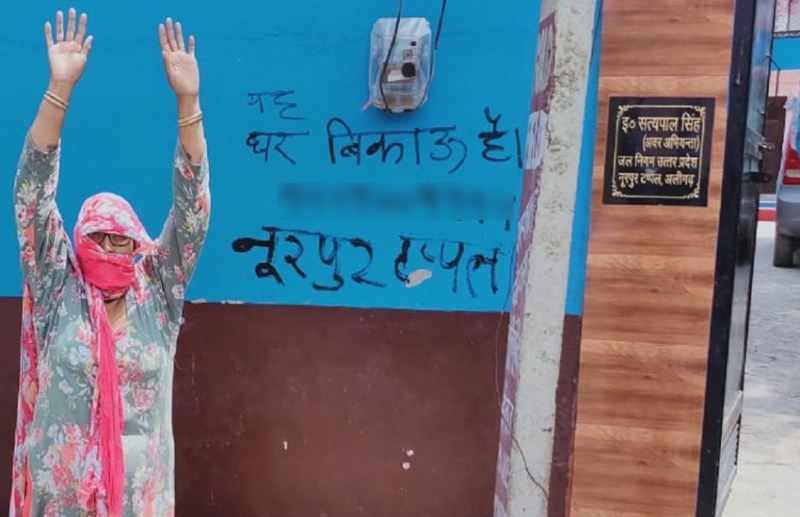 यह
घर बिकाऊ है।
नूरपुर टप्पल
इ० सत्यपाल सिंह
(अवर अभियन्ता)
जल निगम उत्तर प्रदेश
नूरपुर टप्पल, अलीगढ़